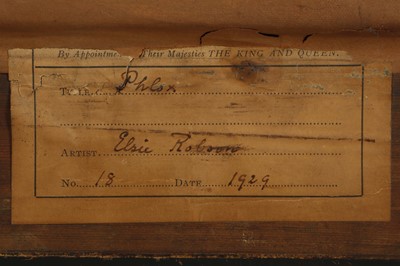 By Appointme Their Majesties THE KING AND QUEEN.
TITLE Phlox
ARTIST Elsie Robson
No. 18 DATE 1929